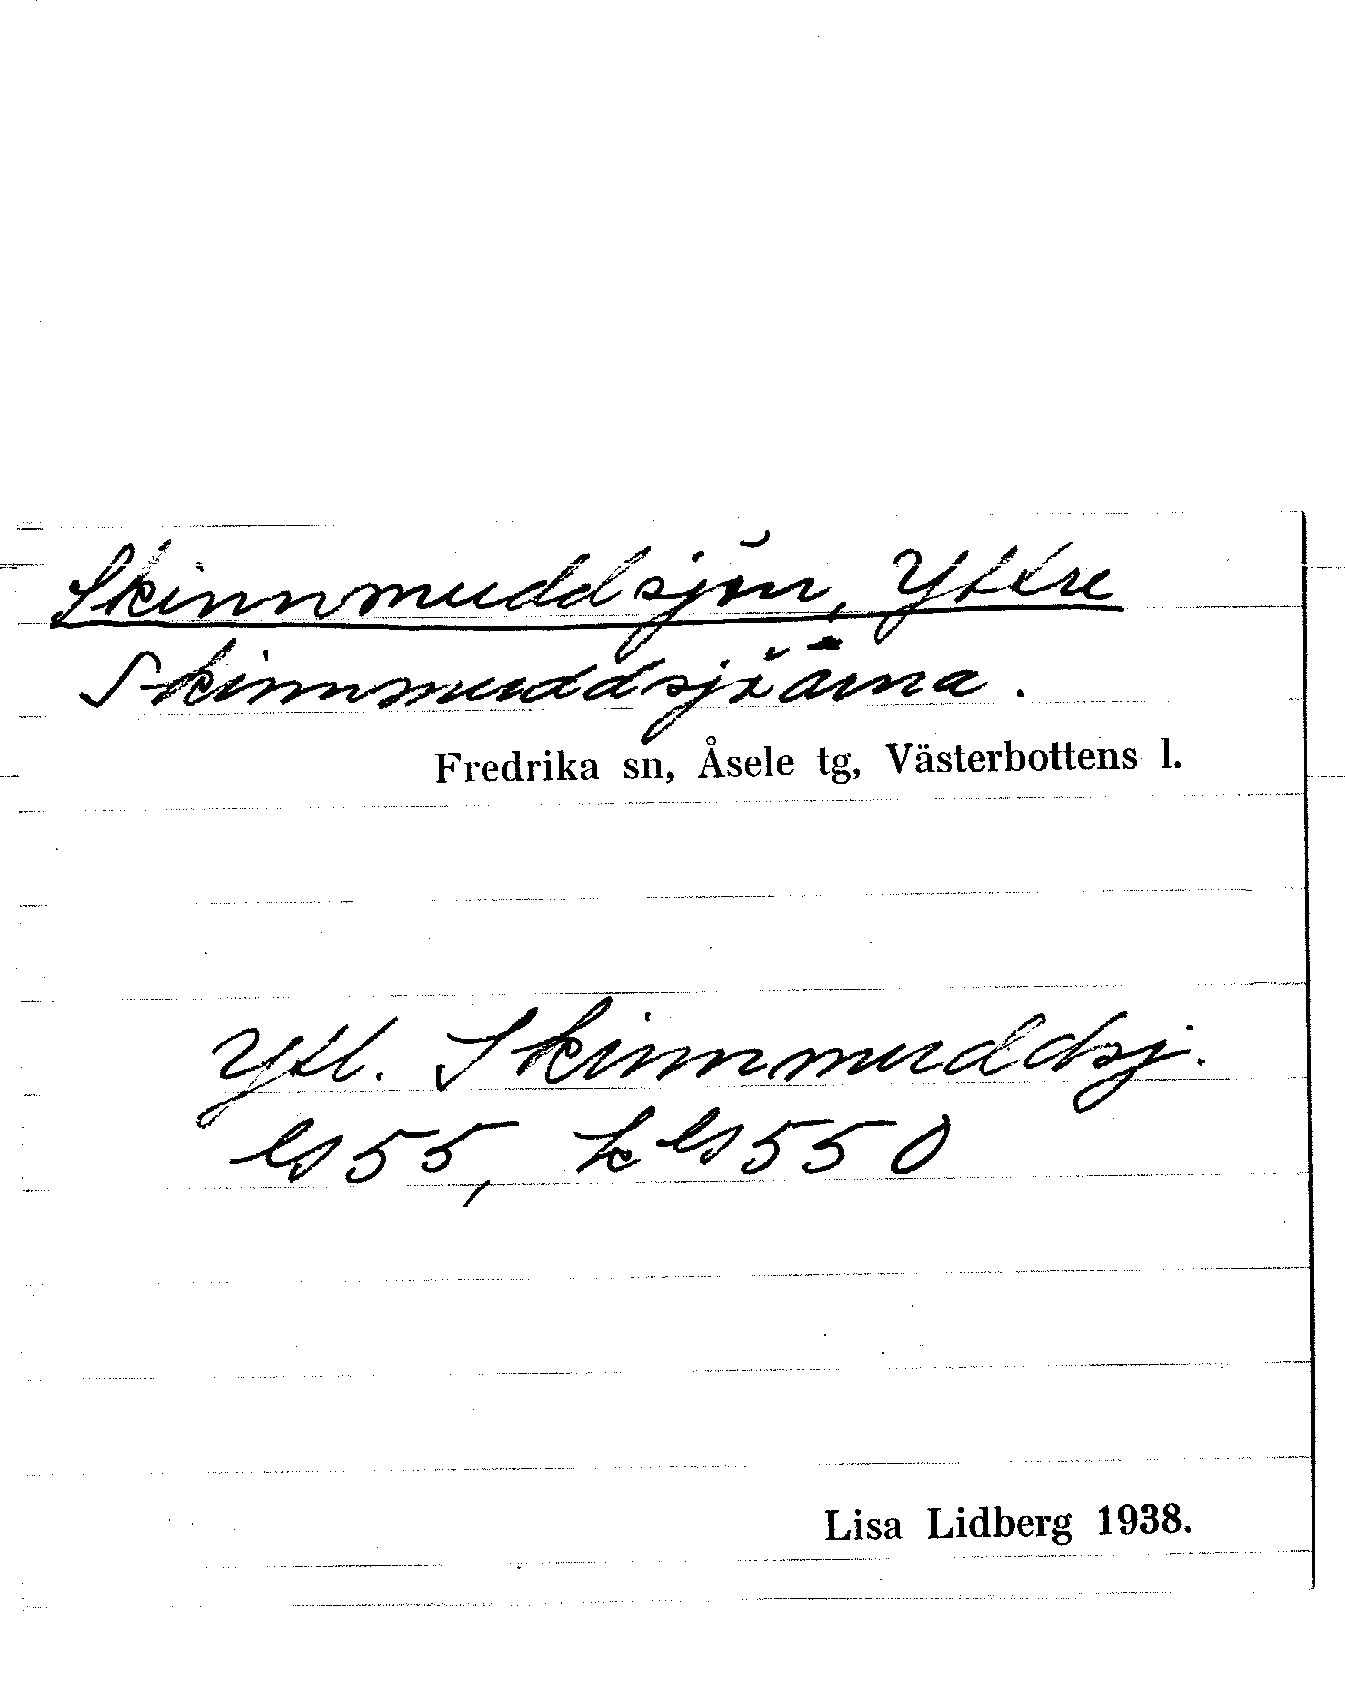 Skinnmuddsjön, Yttre
Skinnmuddsjöarna.
Fredrika sn, Åsele tg, Västerbottens l.
Ytt. Skinnmuddsj.
ls 55, kls 550
Lisa Lidberg 1938.